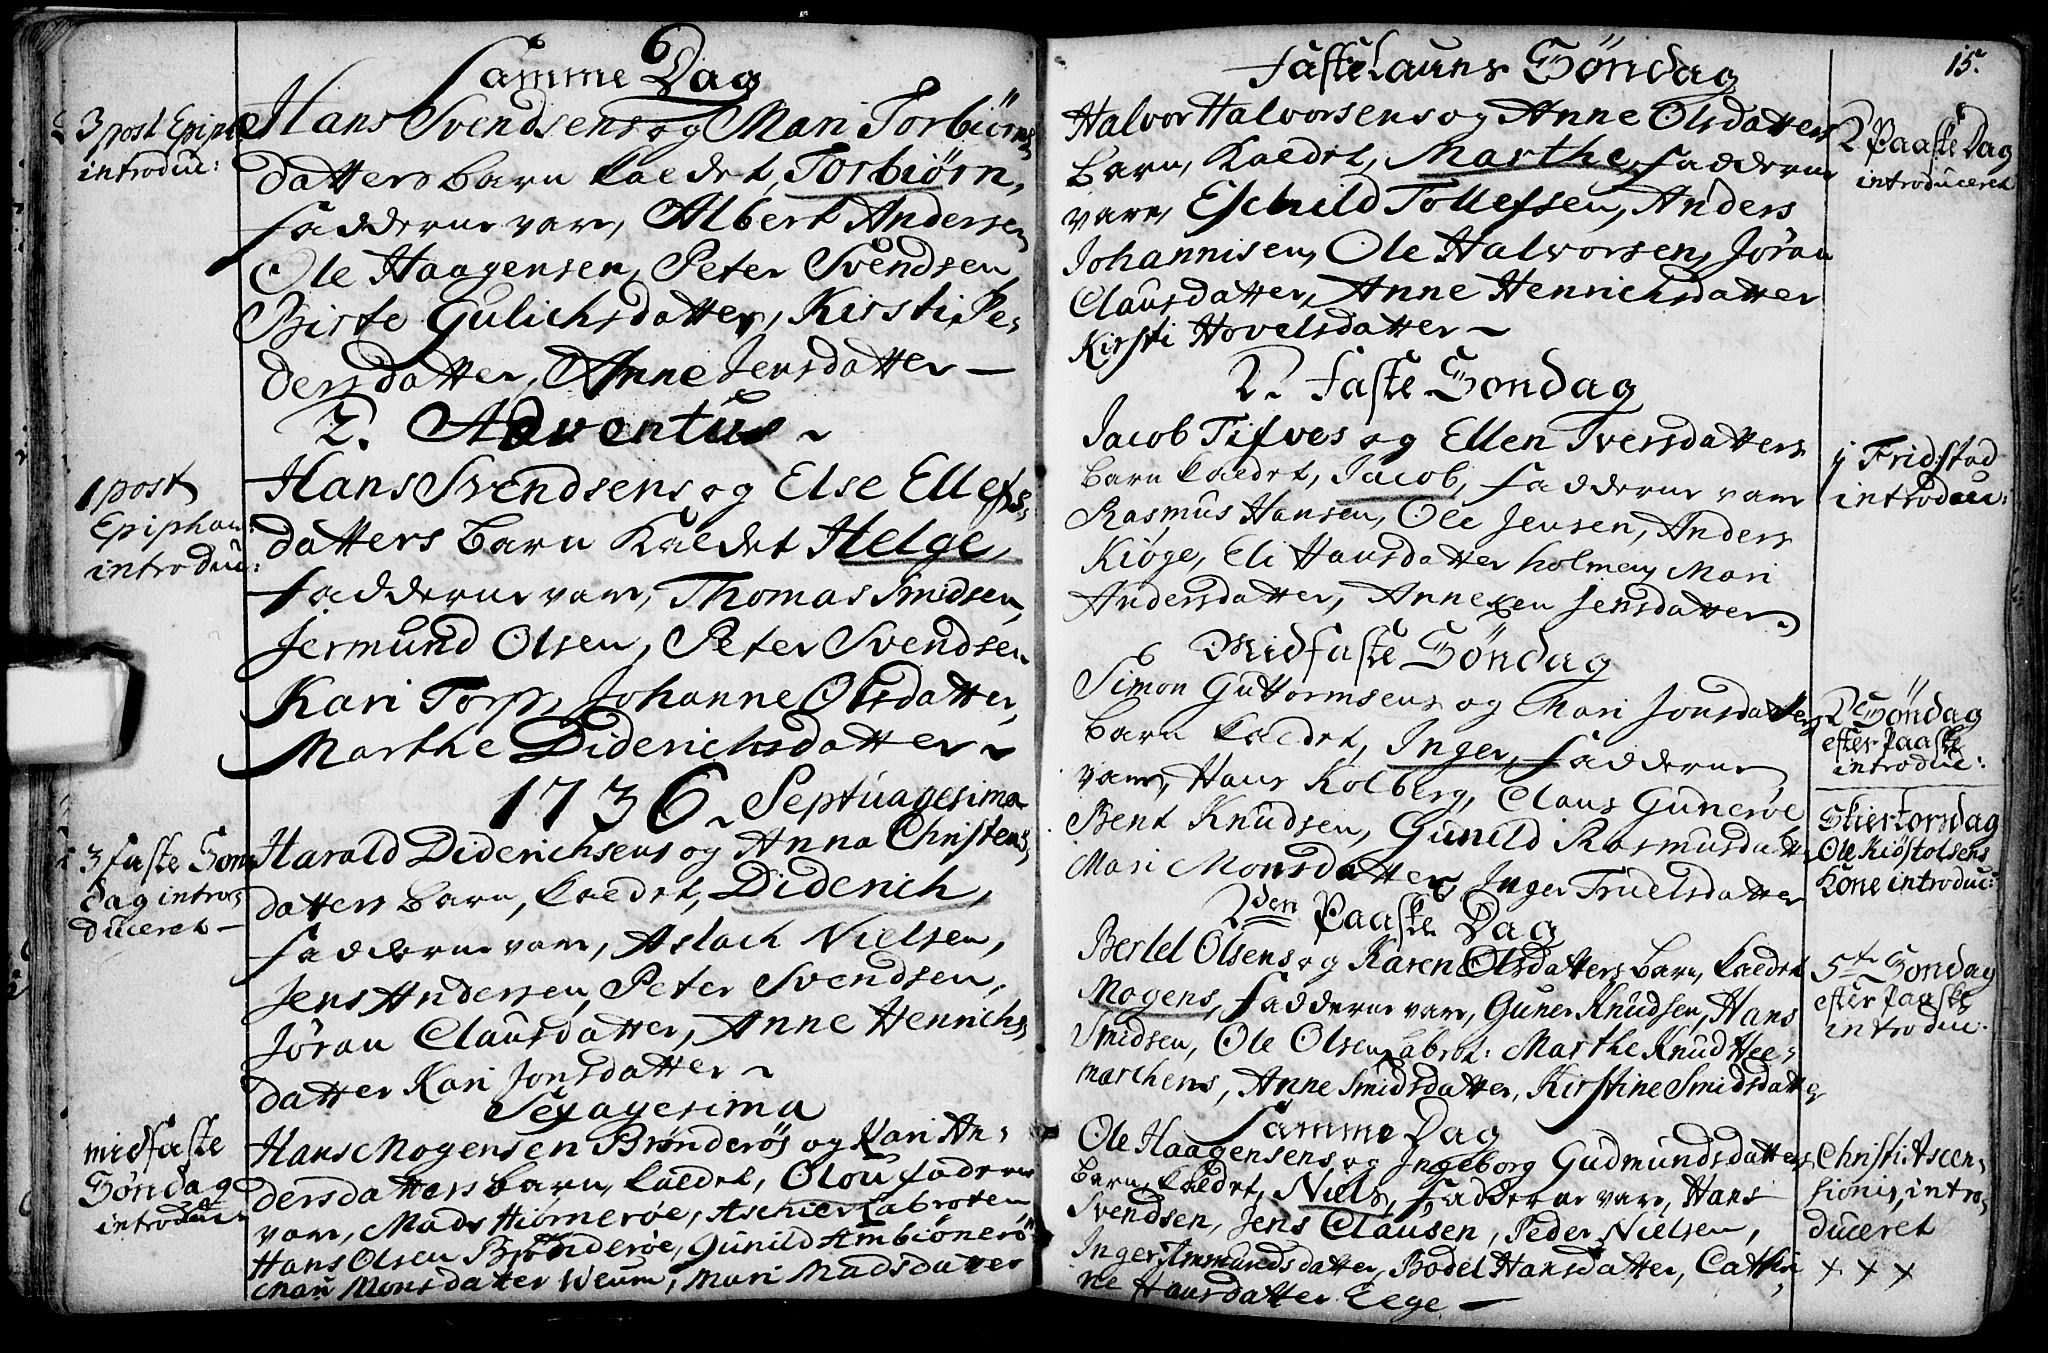 Samme Dag
3 post Epiph
introduc:
Hans Svendsens og Mari Torbiörns
datters barn kaldet, Torbiörn,
fadderne vare, Albert Andersen
Ole Haagensen, Peter Svendsen,
Birte Gulichsdatter, Kirsti Pe=
dersdatter, Anne Jensdatter —
2. Adventus ~
1 post
Epiphan:
introduc:
Hans Svendsens og Else Ellefs=
datters barn kaldet Helge,
fadderne vare, Thomas Smidsen,
Jermund Olsen, Peter Svendsen
Kari Torp, Johanne Olsdatter,
Marthe Diderichsdatter ~
1736. Septuagesima
3 faste Søn
dag intro=
duceret —
Harald Diderichsens og Anna Christens=
datters barn, kaldet, Diderich,
fadderne vare, Aslach Nielsen,
Jens Andersen, Peter Svendsen,
Jöran Clausdatter, Anne Henrichs
datter Kari Jonsdatter ~
Sexagesima
midfaste
Söndag
introduc:
Hans Mogensen Brönderöe og Kari An=
dersdatters barn, kaldet, Olou fadderne
vare, Mads Hiornerøe, Aschier Labroten
Hans Olsen Brönderøe, Gunild Ambiönerö
Mari Monsdatter Weum, Mari Madsdatter
15.
Fastelauns Söndag
Halvor Halvorsens og Anne Olsdatters
barn, kaldet, Marthe, fadderne
vare, Eschild Tollefsen, Anders
Johannisen, Ole Halvorsen, Jöran
Clausdatter, Anne Henrichsdatter
Kirsti Hovelsdatter ~
2 Paaske Dag
introduceret
2. Faste Söndag
Jacob Tifves og Ellen Iversdatters
barn kaldet, Jacob, fadderne vare
Rasmus Hansen, Ole Jensen, Anders
Kiöge, Eli Hansdatter holmen, Mari
Andersdatter, Anne Jensdatter
i Fridstad
introduc:
Midfaste Söndag
Simon Guttormsens og Mari Jonsdatters
barn kaldet, Inger, fadderne
vare, Hans Kolberg, Claus Guneröe
Bent Knudsen, Gunild Rasmusdatter
Mari Monsdatter, Inger Truelsdatter
2 Söndag
efter Paaske
introduc:
Skiertorsdag
Ole Kiöstolsens
Kone introduc:
2den Paaske Dag
Bertel Olsens og Karen Olsdatters barn, kaldet
Mogens, fadderne vare, Guner Knudsen, Hans
Smidsen, Ole Olsen Labrot: Marthe Knud Hee=
marchens, Anne Smidsdatter, Kirstine Smidsdatter
5te Söndag
efter Paaske
introduc:
Samme Dag
Ole Haagensens og Ingeborg Gudmundsdatters
barn kaldet, Niels, fadderne vare, Hans
Svendsen, Jens Clausen, Peder Nielsen,
Inger Ammundsdatter, Bodel Hansdatter, Cathri=
ne Hansdatter Eege —
Christi Ascen=
sionis, intro=
duceret
x x x